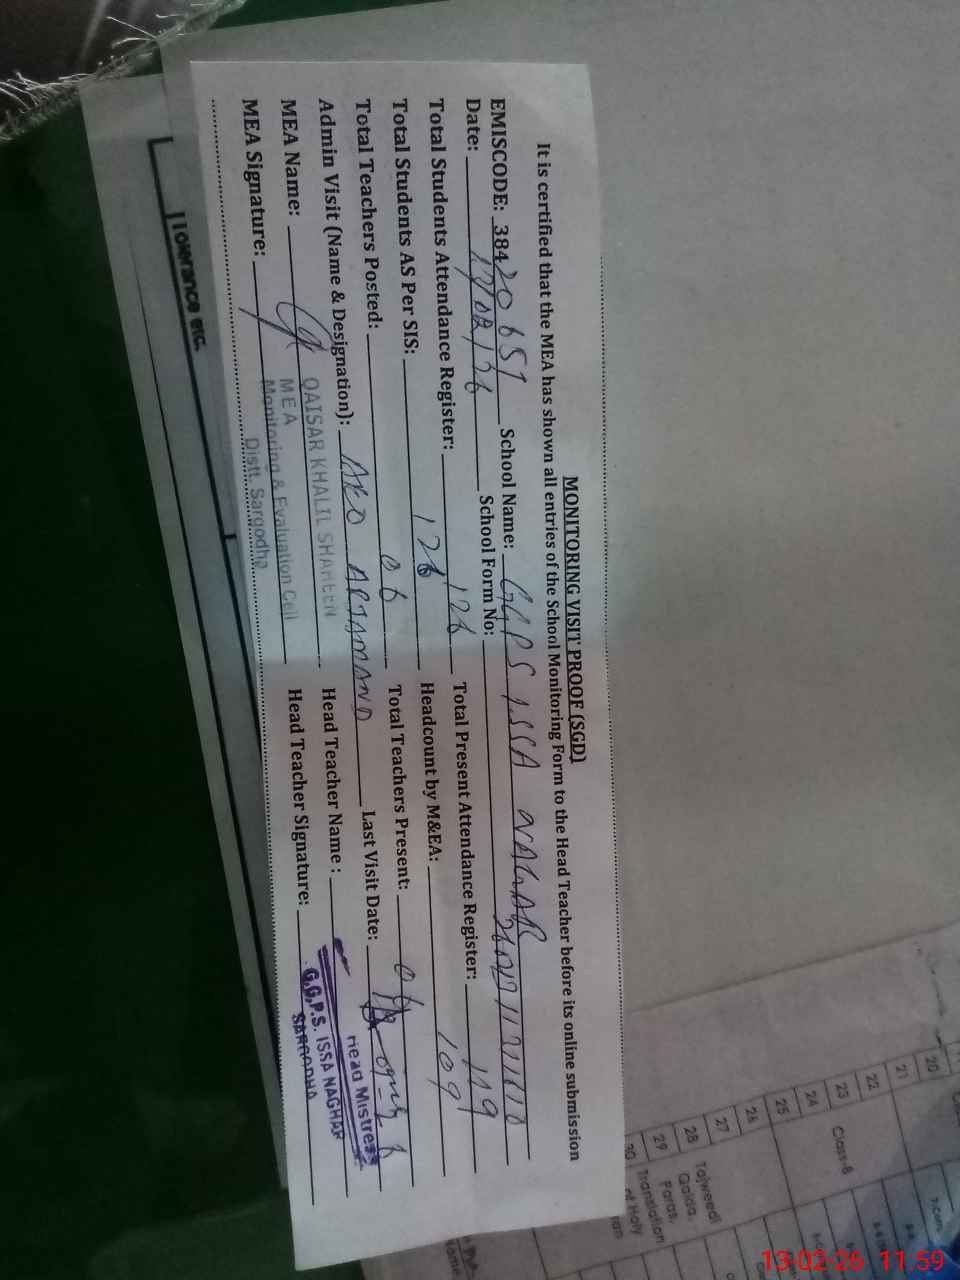 MONITORING VISIT PROOF (SGD)
It is certified that the MEA has shown all entries of the School Monitoring Form to the Head Teacher before its online submission
EMISCODE: 384 20651 School Name: GGPS ISSA NAGAR
Date: School Form No:
Total Students Attendance Register: 126 Total Present Attendance Register: 119
Total Students AS Per SIS: 126 Headcount by M&EA: 109
Total Teachers Posted: 06 Total Teachers Present:
Admin Visit (Name & Designation): AEO ARJAMAND Last Visit Date:
MEA Name: Head Teacher Name :
MEA Signature: Head Teacher Signature:
QAISAR KHALIL SHAHEEN
MEA
Monitoring & Evaluation Cell
Distt. Sargodha
Head Mistress
G.G.P.S. ISSA NAGHAR
SARGODHA
Tolerance etc.
20
21
22
23 Class-8
24
25
26
27
28 Tajweedi
Qaida,
Paras,
29 Translation
30 of Holy
13-02-26 11:59